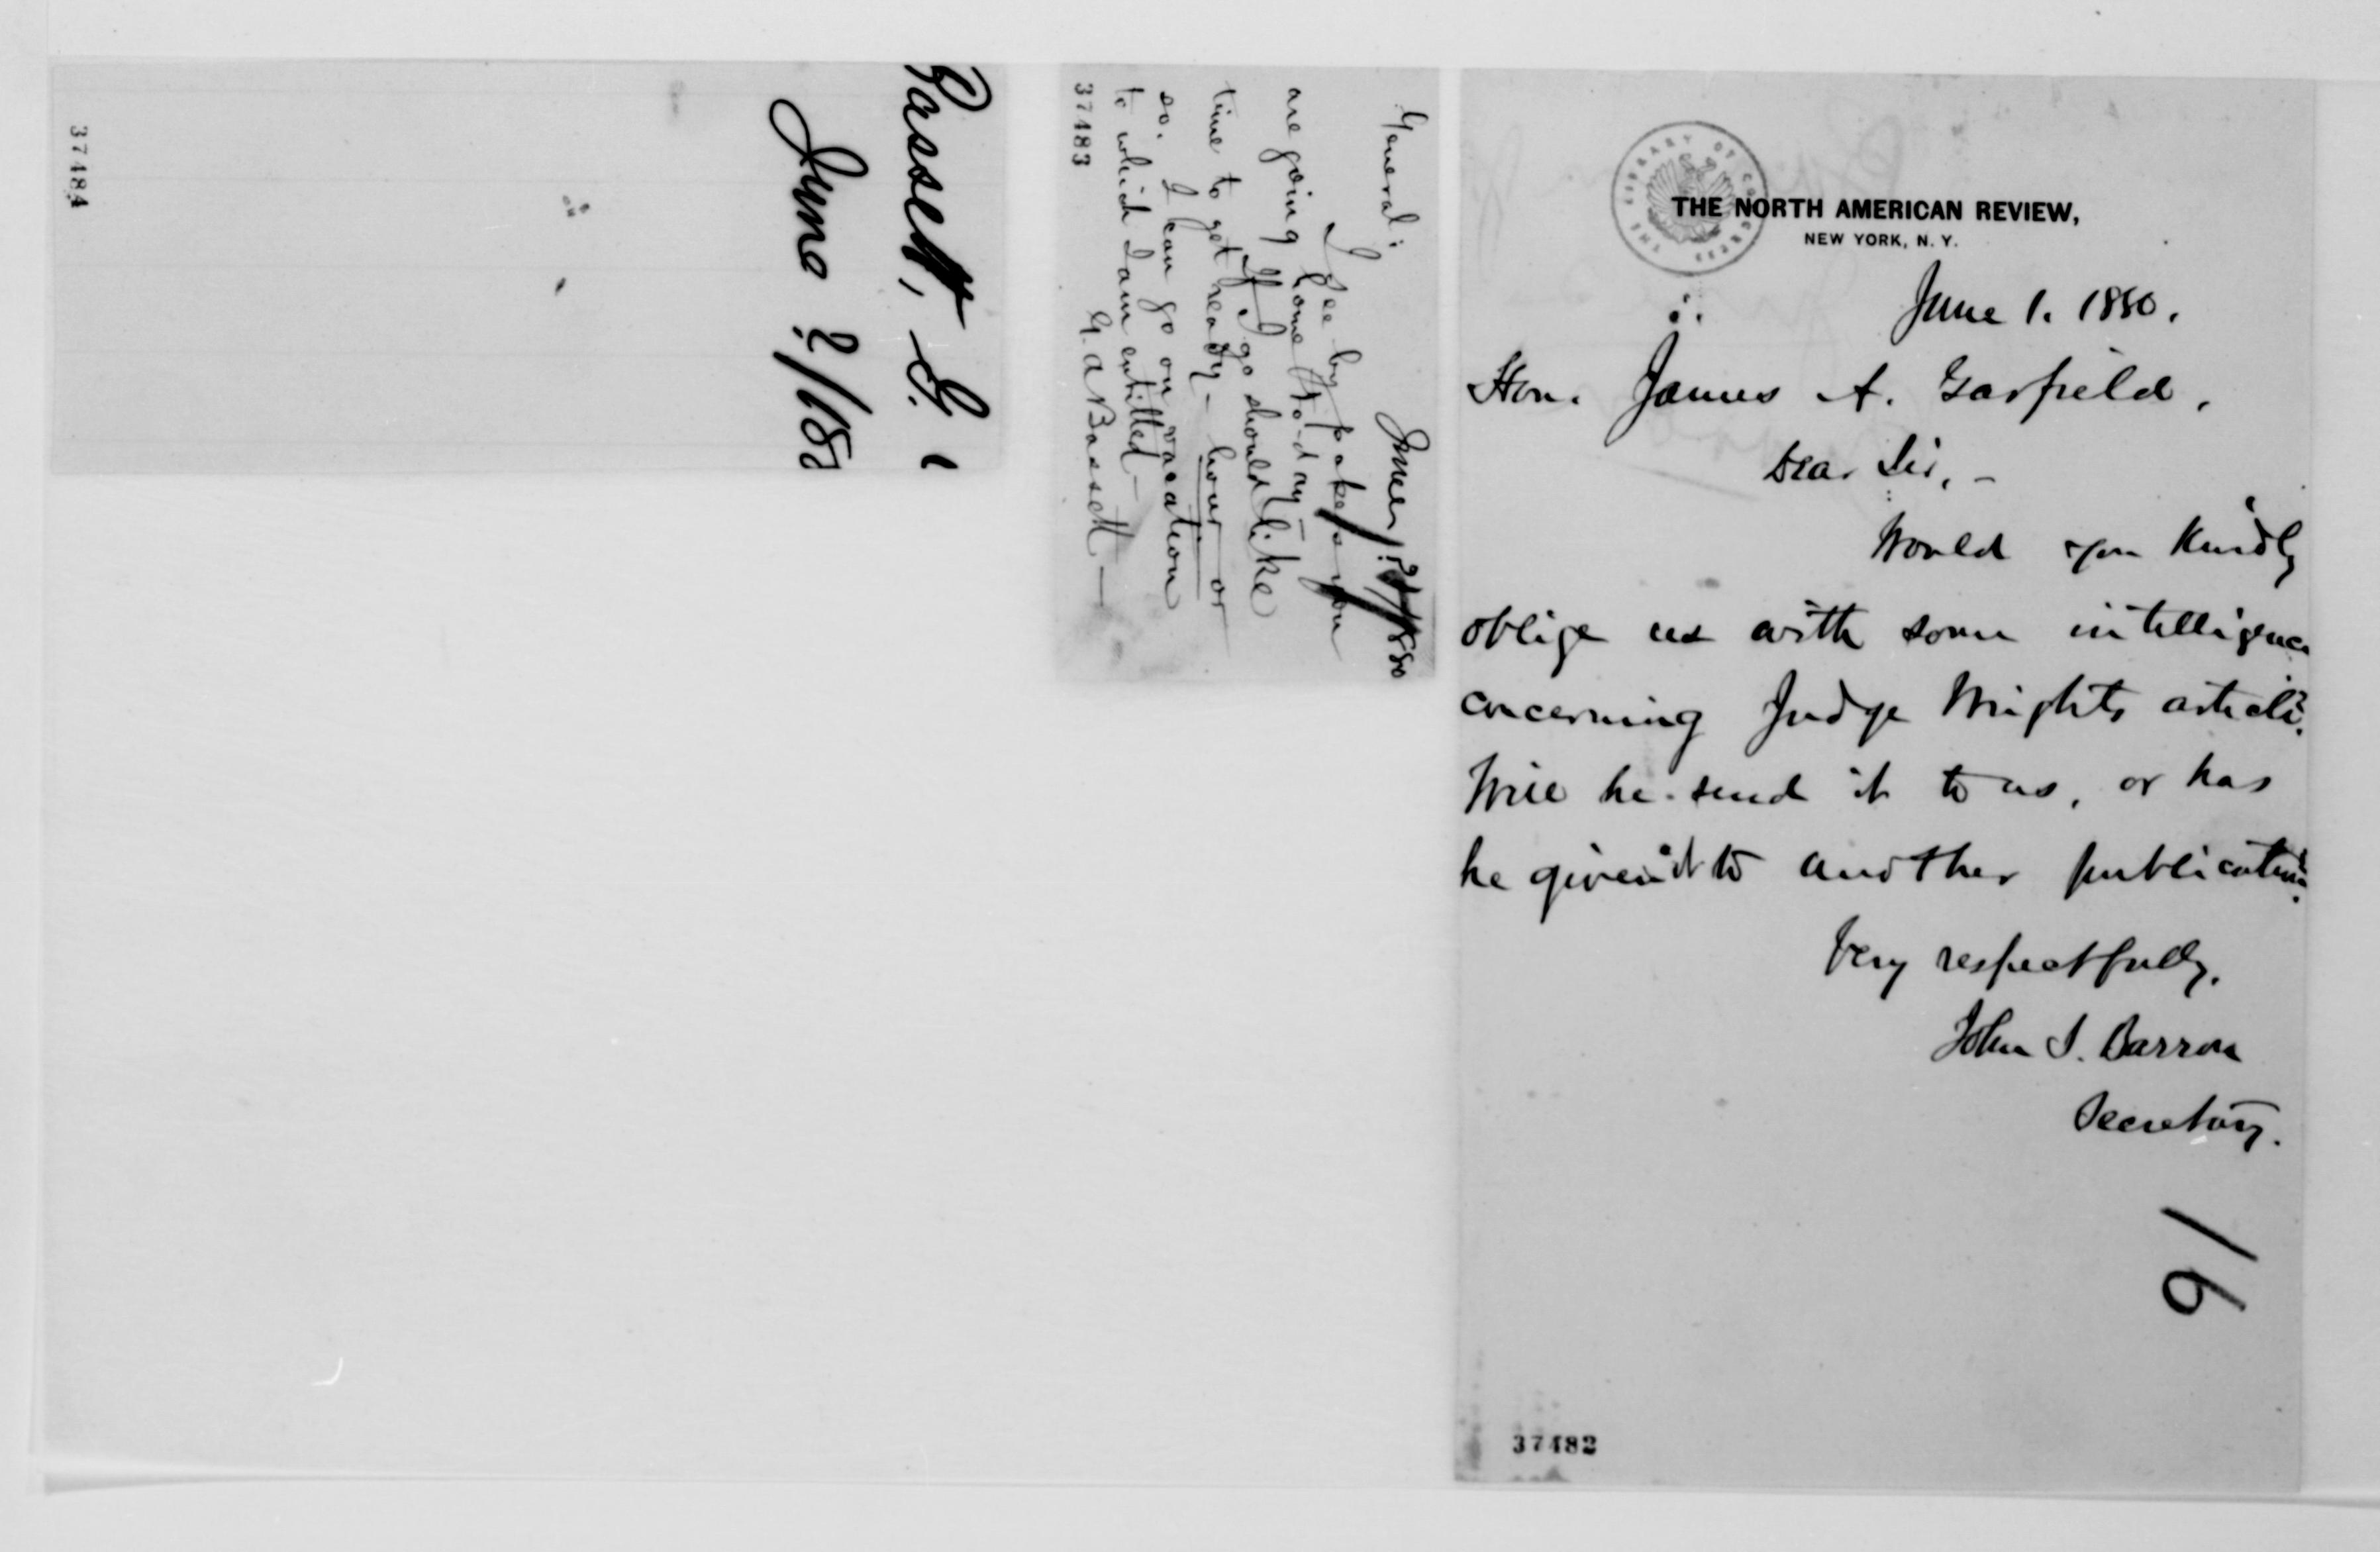 Bassett, G.
June ?/188
37484
General:
June ?/1880
I see by papers you
are going home to-day—
If I go should like
time to get ready— hour or
so. I can go on vacation
to which I am entitled—
G. A. Bassett—
37483
THE LIBRARY OF CONGRESS
THE NORTH AMERICAN REVIEW,
NEW YORK, N. Y.
June 1. 1880.
Hon. James A. Garfield,
Dear Sir, -
Would you kindly
oblige us with some intelligence
concerning Judge Wrights article?
Will he send it to us, or has
he given it to another publication?
Very respectfully,
John S. Barron
Secretary.
16
37482